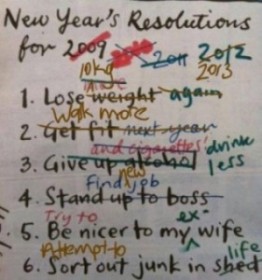 New Year's Resolutions
for 2009 2011 2012
10kg 2013
1. Lose weight again
Walk more
2. Get fit next year
and cigarettes! drink
3. Give up alcohol less
Find new job
4. Stand up to boss
Try to ex-
5. Be nicer to my wife
Attempt to life
6. Sort out junk in shed